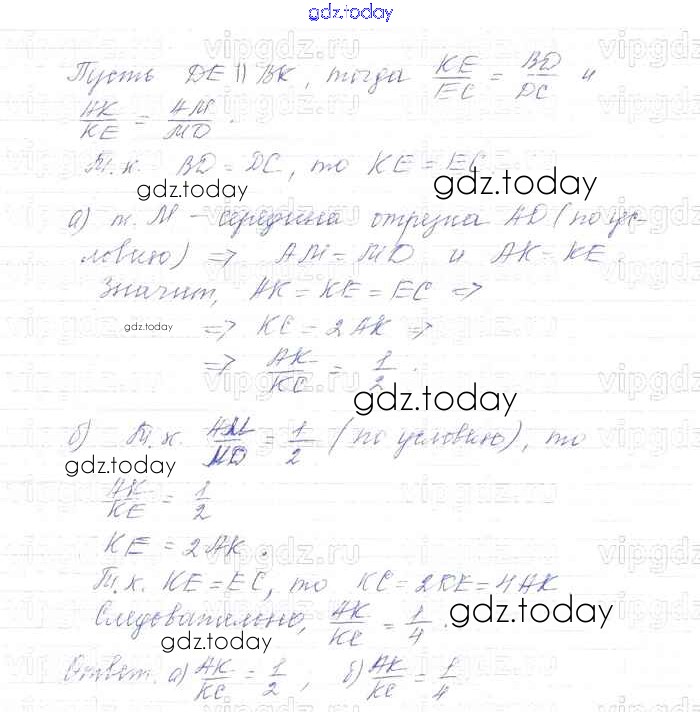 gdz.today
Пусть DE || BK, тогда KE/EC = BD/DC и
AK/KE = AM/MD.
Т.к. BD = DC, то KE = EC
gdz.today gdz.today
а) т. M – середина отрезка AD (по ус-
ловию) => AM = MD и AK = KE.
Значит, AK = KE = EC =>
gdz.today => KC = 2AK =>
=> AK/KC = 1/2.
gdz.today
б) Т.к. AM/MD = 1/2 (по условию), то
gdz.today
AK/KE = 1/2
KE = 2AK.
Т.к. KE = EC, то KC = 2KE = 4AK
Следовательно, AK/KC = 1/4.
gdz.today
gdz.today
Ответ. а) AK/KC = 1/2, б) AK/KC = 1/4